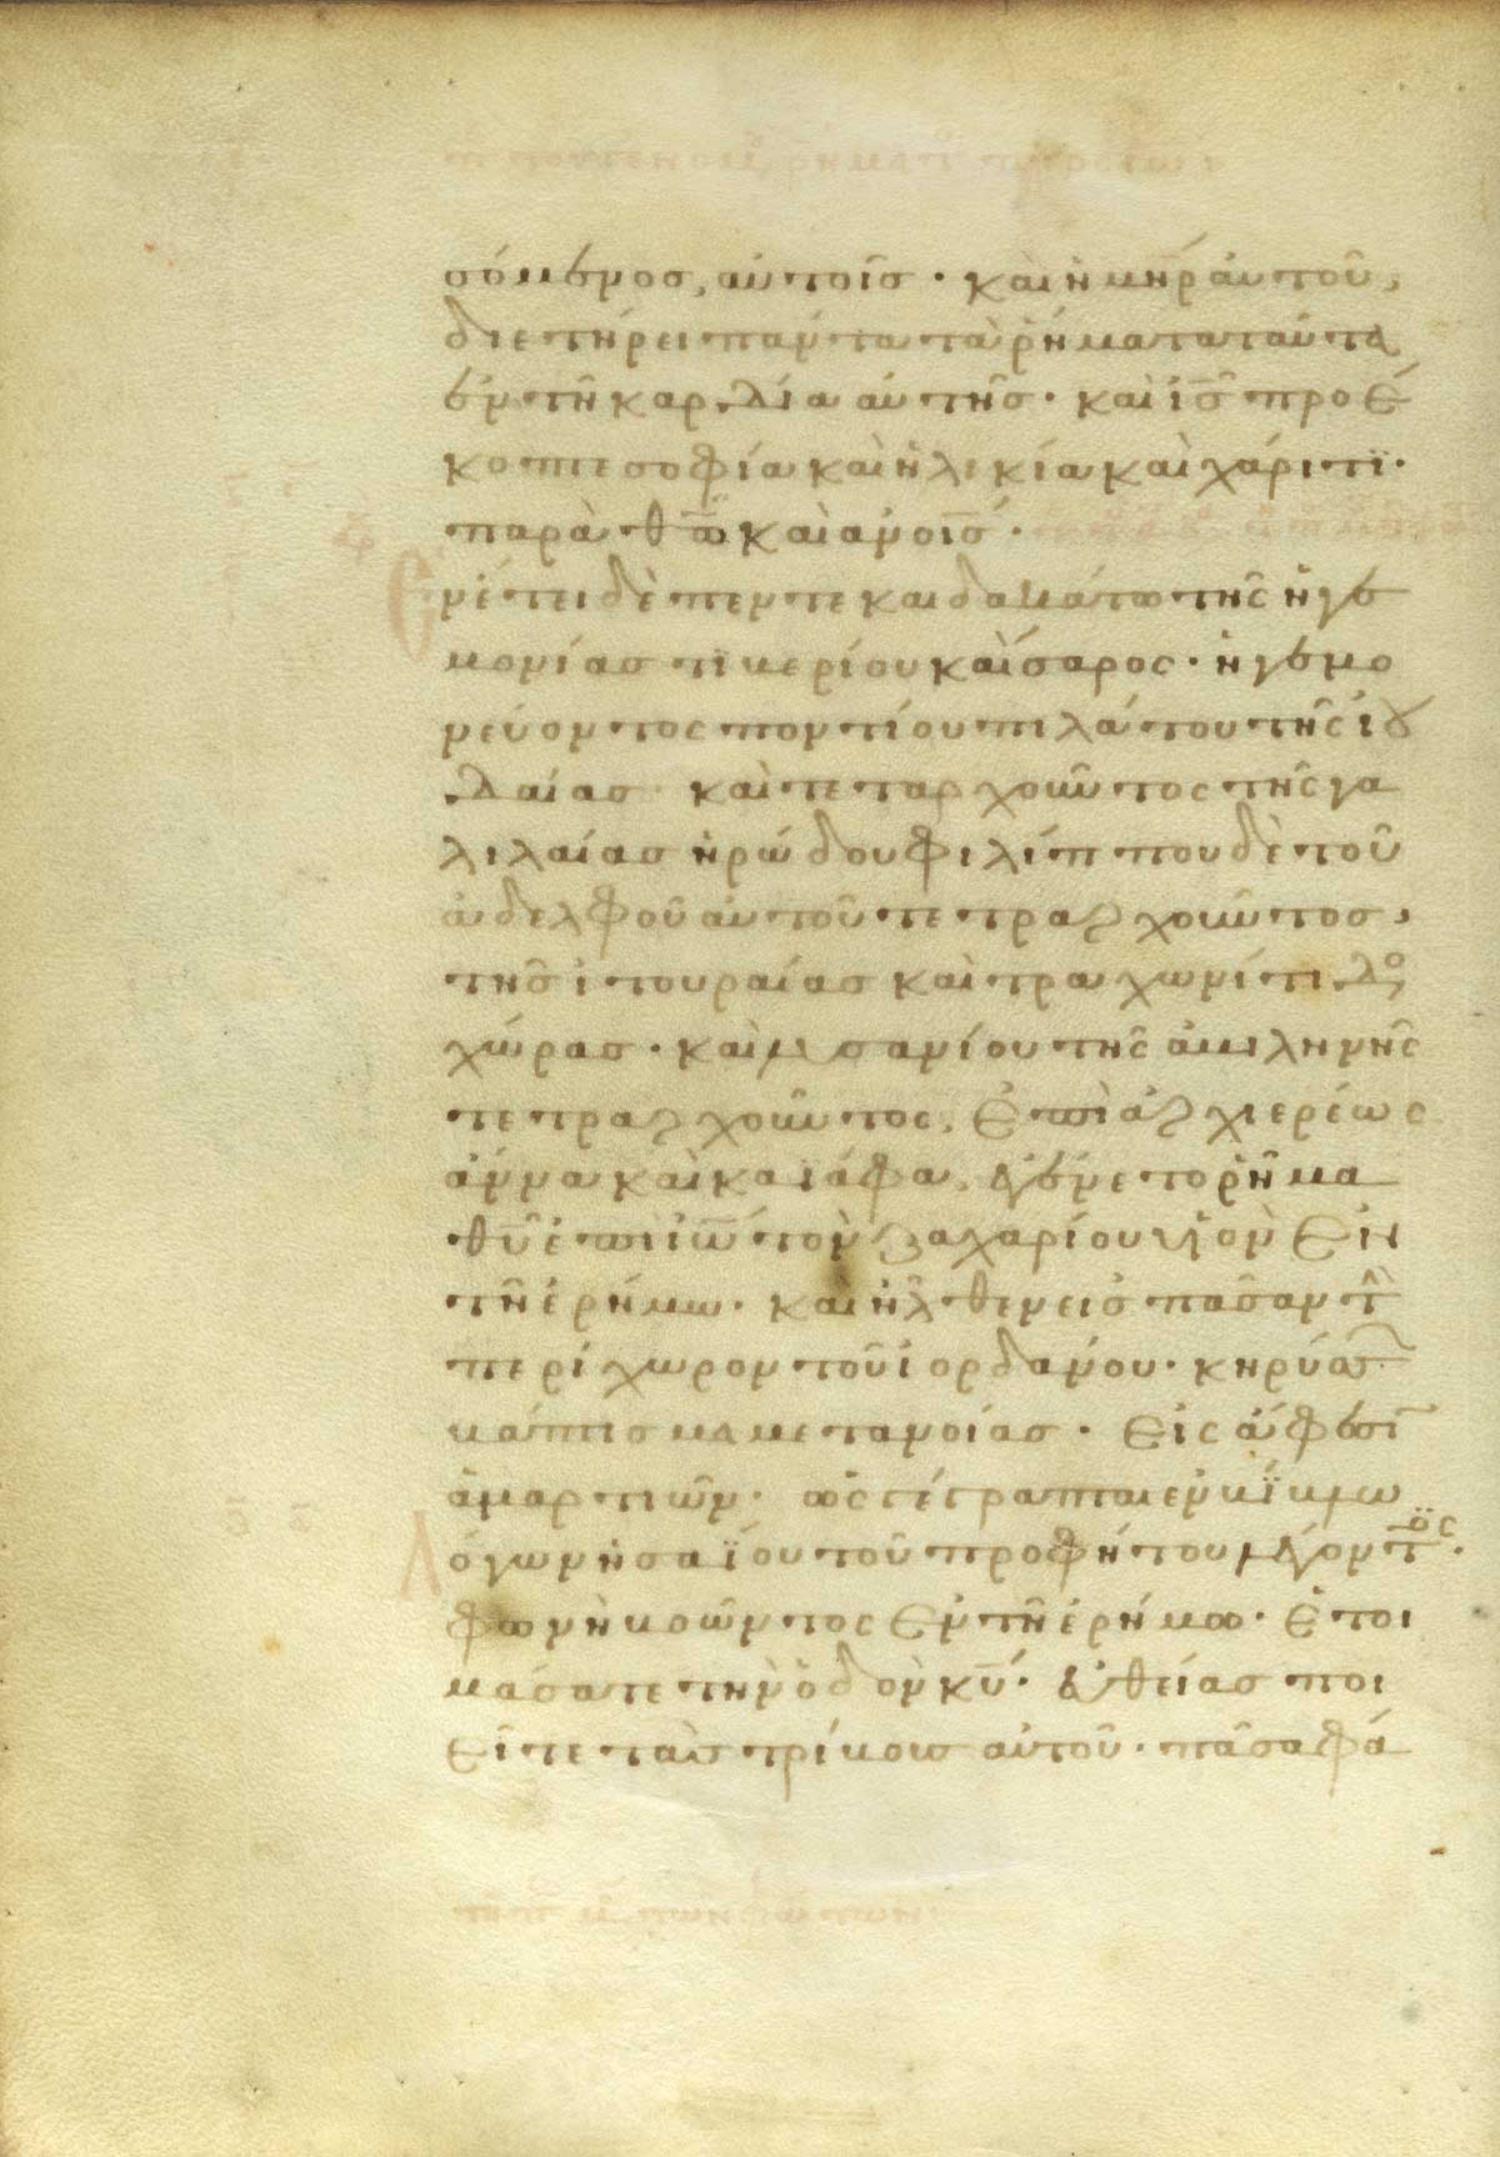 σόμενος, αὐτοῖς · καὶ ἡ μηρ αὐτοῦ,
διετήρει πάντα τὰ ῥήματα ταῦτα
ἐν τῆ καρδία αὐτῆς · καὶ ις προέ
κοπτε σοφία καὶ ἡλικία καὶ χάριτϊ ·
παρὰ θω καὶ ανοις ·
Ἐν ἔτει δὲ πεντεκαιδεκάτω τῆς ἡγε
μονίας τιβερίου καίσαρος · ἡγεμο
νεύοντος ποντίου πιλάτου τῆς ἰου
δαίας · καὶ τεταρχοῦντος τῆς γα
λιλαίας ἡρώδου φιλίππου δὲ τοῦ
ἀδελφοῦ αὐτοῦ τετραρχοῦντος,
τῆς ἰτουραίας καὶ τραχωνίτιδο
χώρας · καὶ λυσανίου τῆς ἀβιληνῆς
τετραρχοῦντος, ἐπὶ ἀρχιερέως
ἄννα καὶ καϊάφα, ἐγένετο ῥῆμα
θυ ἐπὶ ιω τὸν ζαχαρίου υἱὸν ἐν
τῆ ἐρήμω · καὶ ἦλθεν εἰς πᾶσαν τὴν
περίχωρον τοῦ ἰορδάνου · κηρύσσων
βάπτισμα μετανοίας · εἰς ἄφεσιν
ἁμαρτιῶν · ὡς γέγραπται ἐν βίβλω
λόγων ἡσαΐου τοῦ προφήτου λέγοντος ·
φωνὴ βοῶντος ἐν τῆ ἐρήμω · ἑτοι
μάσατε τὴν ὁδὸν κυ · εὐθείας ποι
εῖτε τὰς τρίβους αὐτοῦ · πᾶσα φά